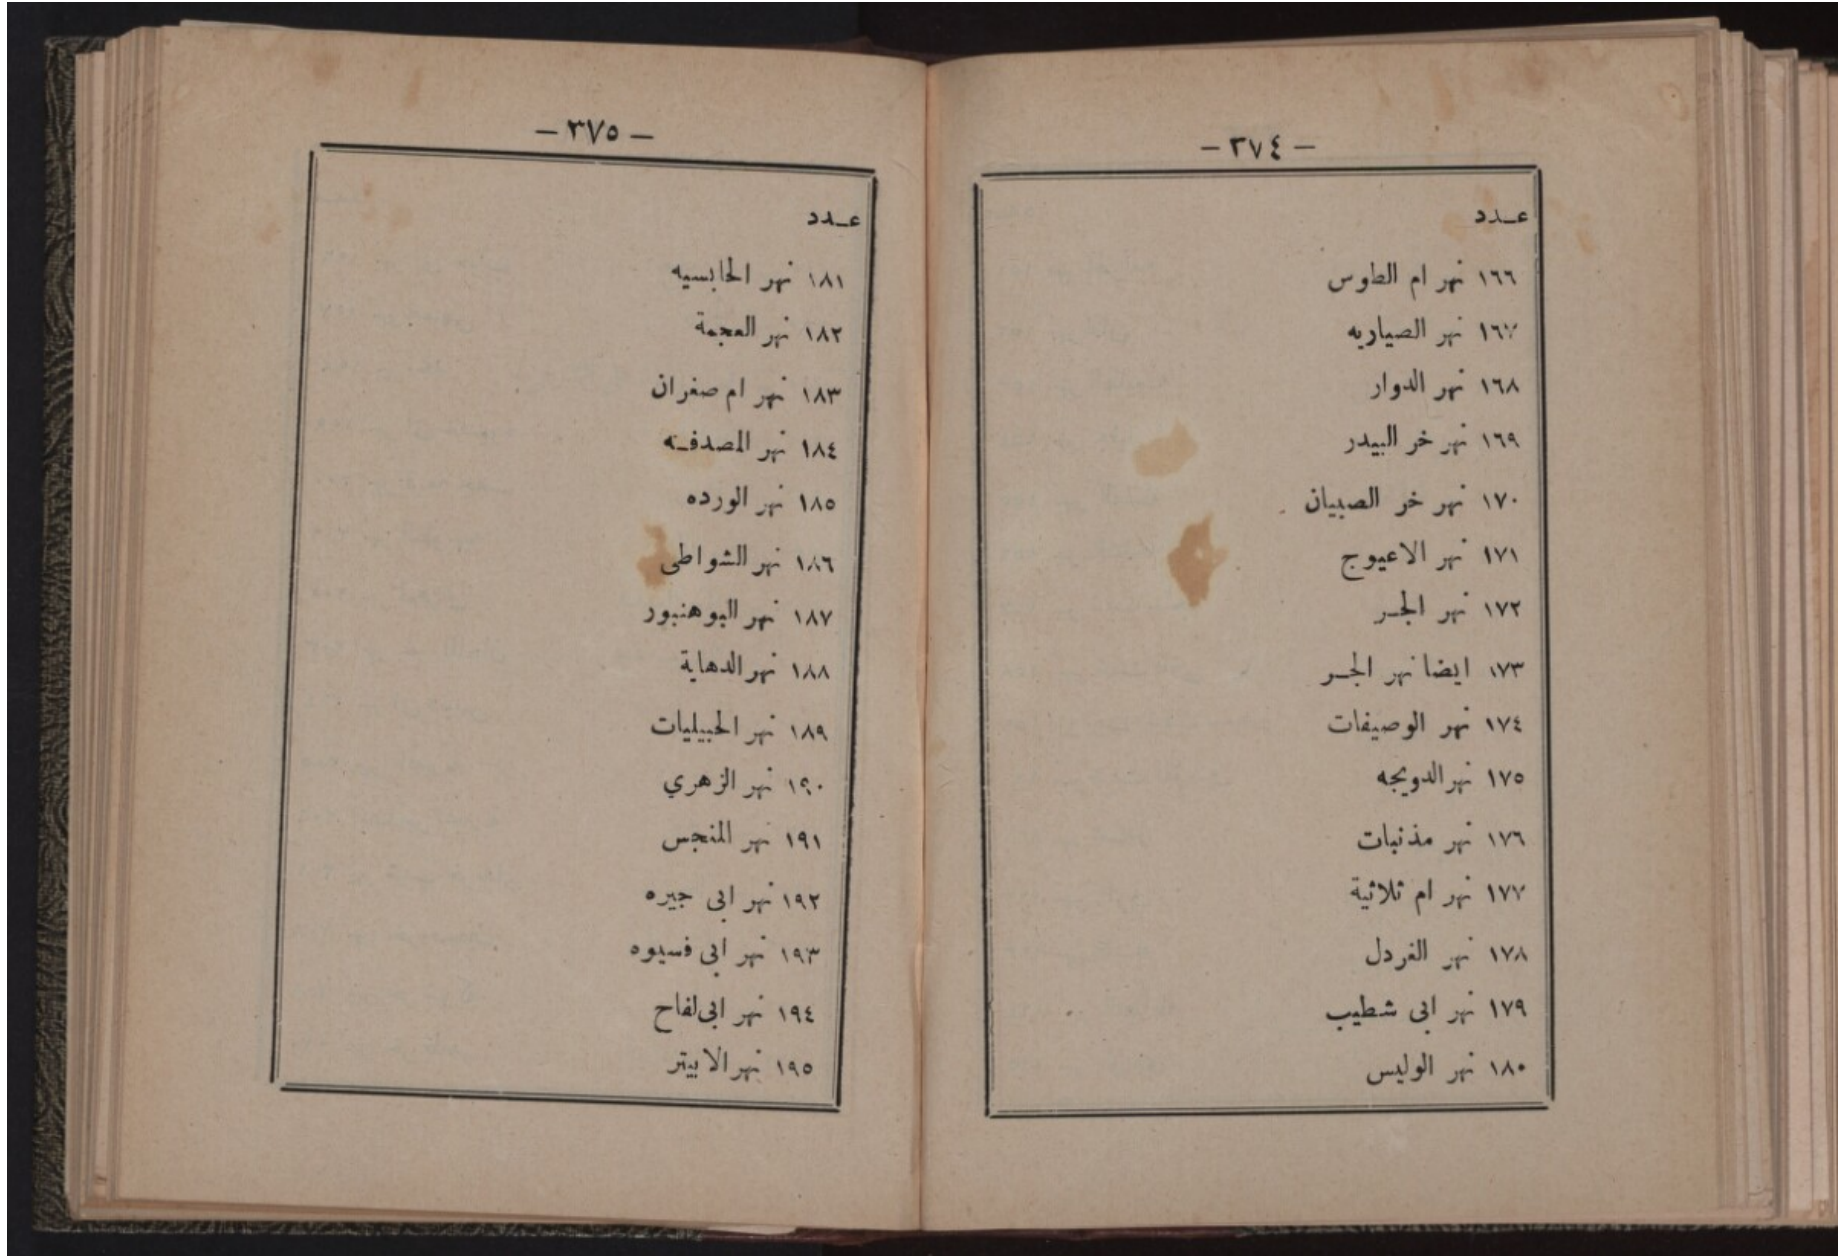 — ٣٧٤ —
عـدد
١٦٦ نهر ام الطوس
١٦٧ نهر الصياريه
١٦٨ نهر الدوار
١٦٩ نهر خر البيدر
١٧٠ نهر خر الصبيان
١٧١ نهر الاعيوج
١٧٢ نهر الجـر
١٧٣ ايضا نهر الجـر
١٧٤ نهر الوصيفات
١٧٥ نهر الدويجه
١٧٦ نهر مذنبات
١٧٧ نهر ام ثلاثية
١٧٨ نهر الغردل
١٧٩ نهر ابى شطيب
١٨٠ نهر الوليس
— ٣٧٥ —
عـدد
١٨١ نهر الحابسيه
١٨٢ نهر العجمة
١٨٣ نهر ام صغران
١٨٤ نهر المصدفـه
١٨٥ نهر الورده
١٨٦ نهر الشواطى
١٨٧ نهر البوهنبور
١٨٨ نهر الدهاية
١٨٩ نهر الحبيليات
١٩٠ نهر الزهري
١٩١ نهر المنجس
١٩٢ نهر ابى جيره
١٩٣ نهر ابى فسيوه
١٩٤ نهر ابى لفاح
١٩٥ نهر الابيتر